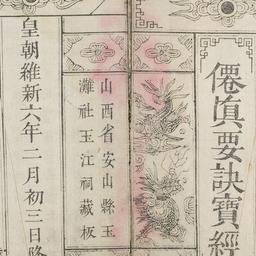 僊眞要訣寶經
山西省安山縣玉
灘社玉江祠藏板
皇朝維新六年二月初三日降